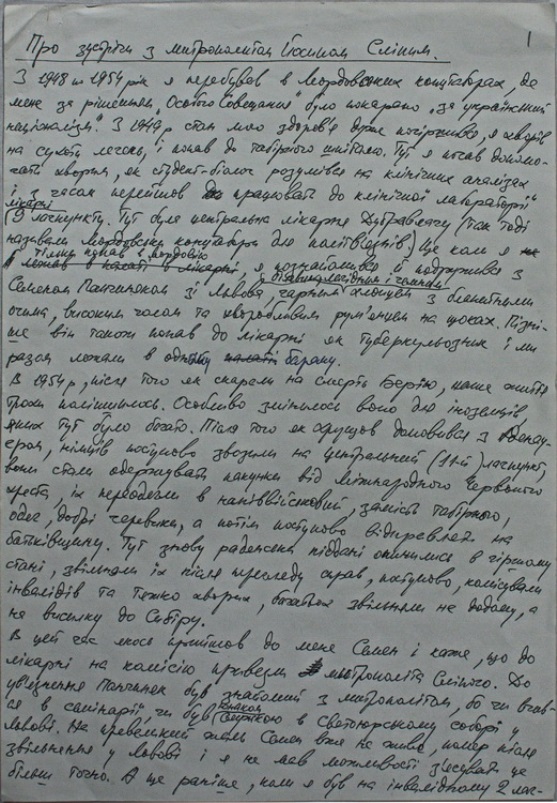 1
Про зустрічі з митрополитом Йосипом Сліпим.
З 1948 по 1954 рік я перебував в Мордовських концтаборах, де
мене за рішенням „Особого Совещания" було покарано „за український
націоналізм". З 1949 р стан мого здоров'я дуже погіршився, я хворів
на сухоти легень, і попав до табірного шпиталю. Тут я почав допома-
гати хворим, як студент-біолог розумівся на клінічних аналізах
і з часом перейшов працювати до клінічної лабораторії
лікарні
9 лагпункту. Тут була центральна лікарня Дубравлагу (так тоді
називали Мордовські концтабори для політв'язнів) Ще коли я
тільки попав в Мордовію
лежав в палаті в лікарні, я познайомився й подружився з
Семеном Панчишином зі Львова, гарним хлопцем з блакитними
очима, високим чолом та хворобливим рум'янцем на щоках. Пізні-
ше він також попав до лікарні як туберкульозник і ми
разом лежали в одному палаті бараку.
В 1954 р, після того як скарали на смерть Берію, наше життя
трохи поліпшилось. Особливо змінилось воно для іноземців,
яких тут було багато. Після того як Хрущов домовився з Аденау-
ером, німців поступово звозили на центральний (11-й) лагпункт,
вони стали одержувати пакунки від Міжнародного Червоного
Хреста, їх переодягли в напіввійськовий, замість табірного,
одяг, добрі черевики, а потім поступово відправляли на
батьківщину. Тут знову радянські піддані опинилися в гіршому
стані, звільняли їх після перегляду справ, поступово, комісували
інвалідів та тяжко хворих, багатьох звільняли не додому, а
на висилку до Сибіру.
В цей час якось прийшов до мене Семен і каже, що до
лікарні на комісію привезли митрополита Сліпого. До
ув'язнення Панчишин був знайомий з митрополитом, бо чи вчив-
ся в семінарії, чи був в Святоюрському соборі у
Львові. На превеликий жаль Семен вже не живе, помер після
звільнення у Львові і я не мав можливості з'ясувати це
більш точно. А ще раніше, коли я був на інвалідному 2 лаг-